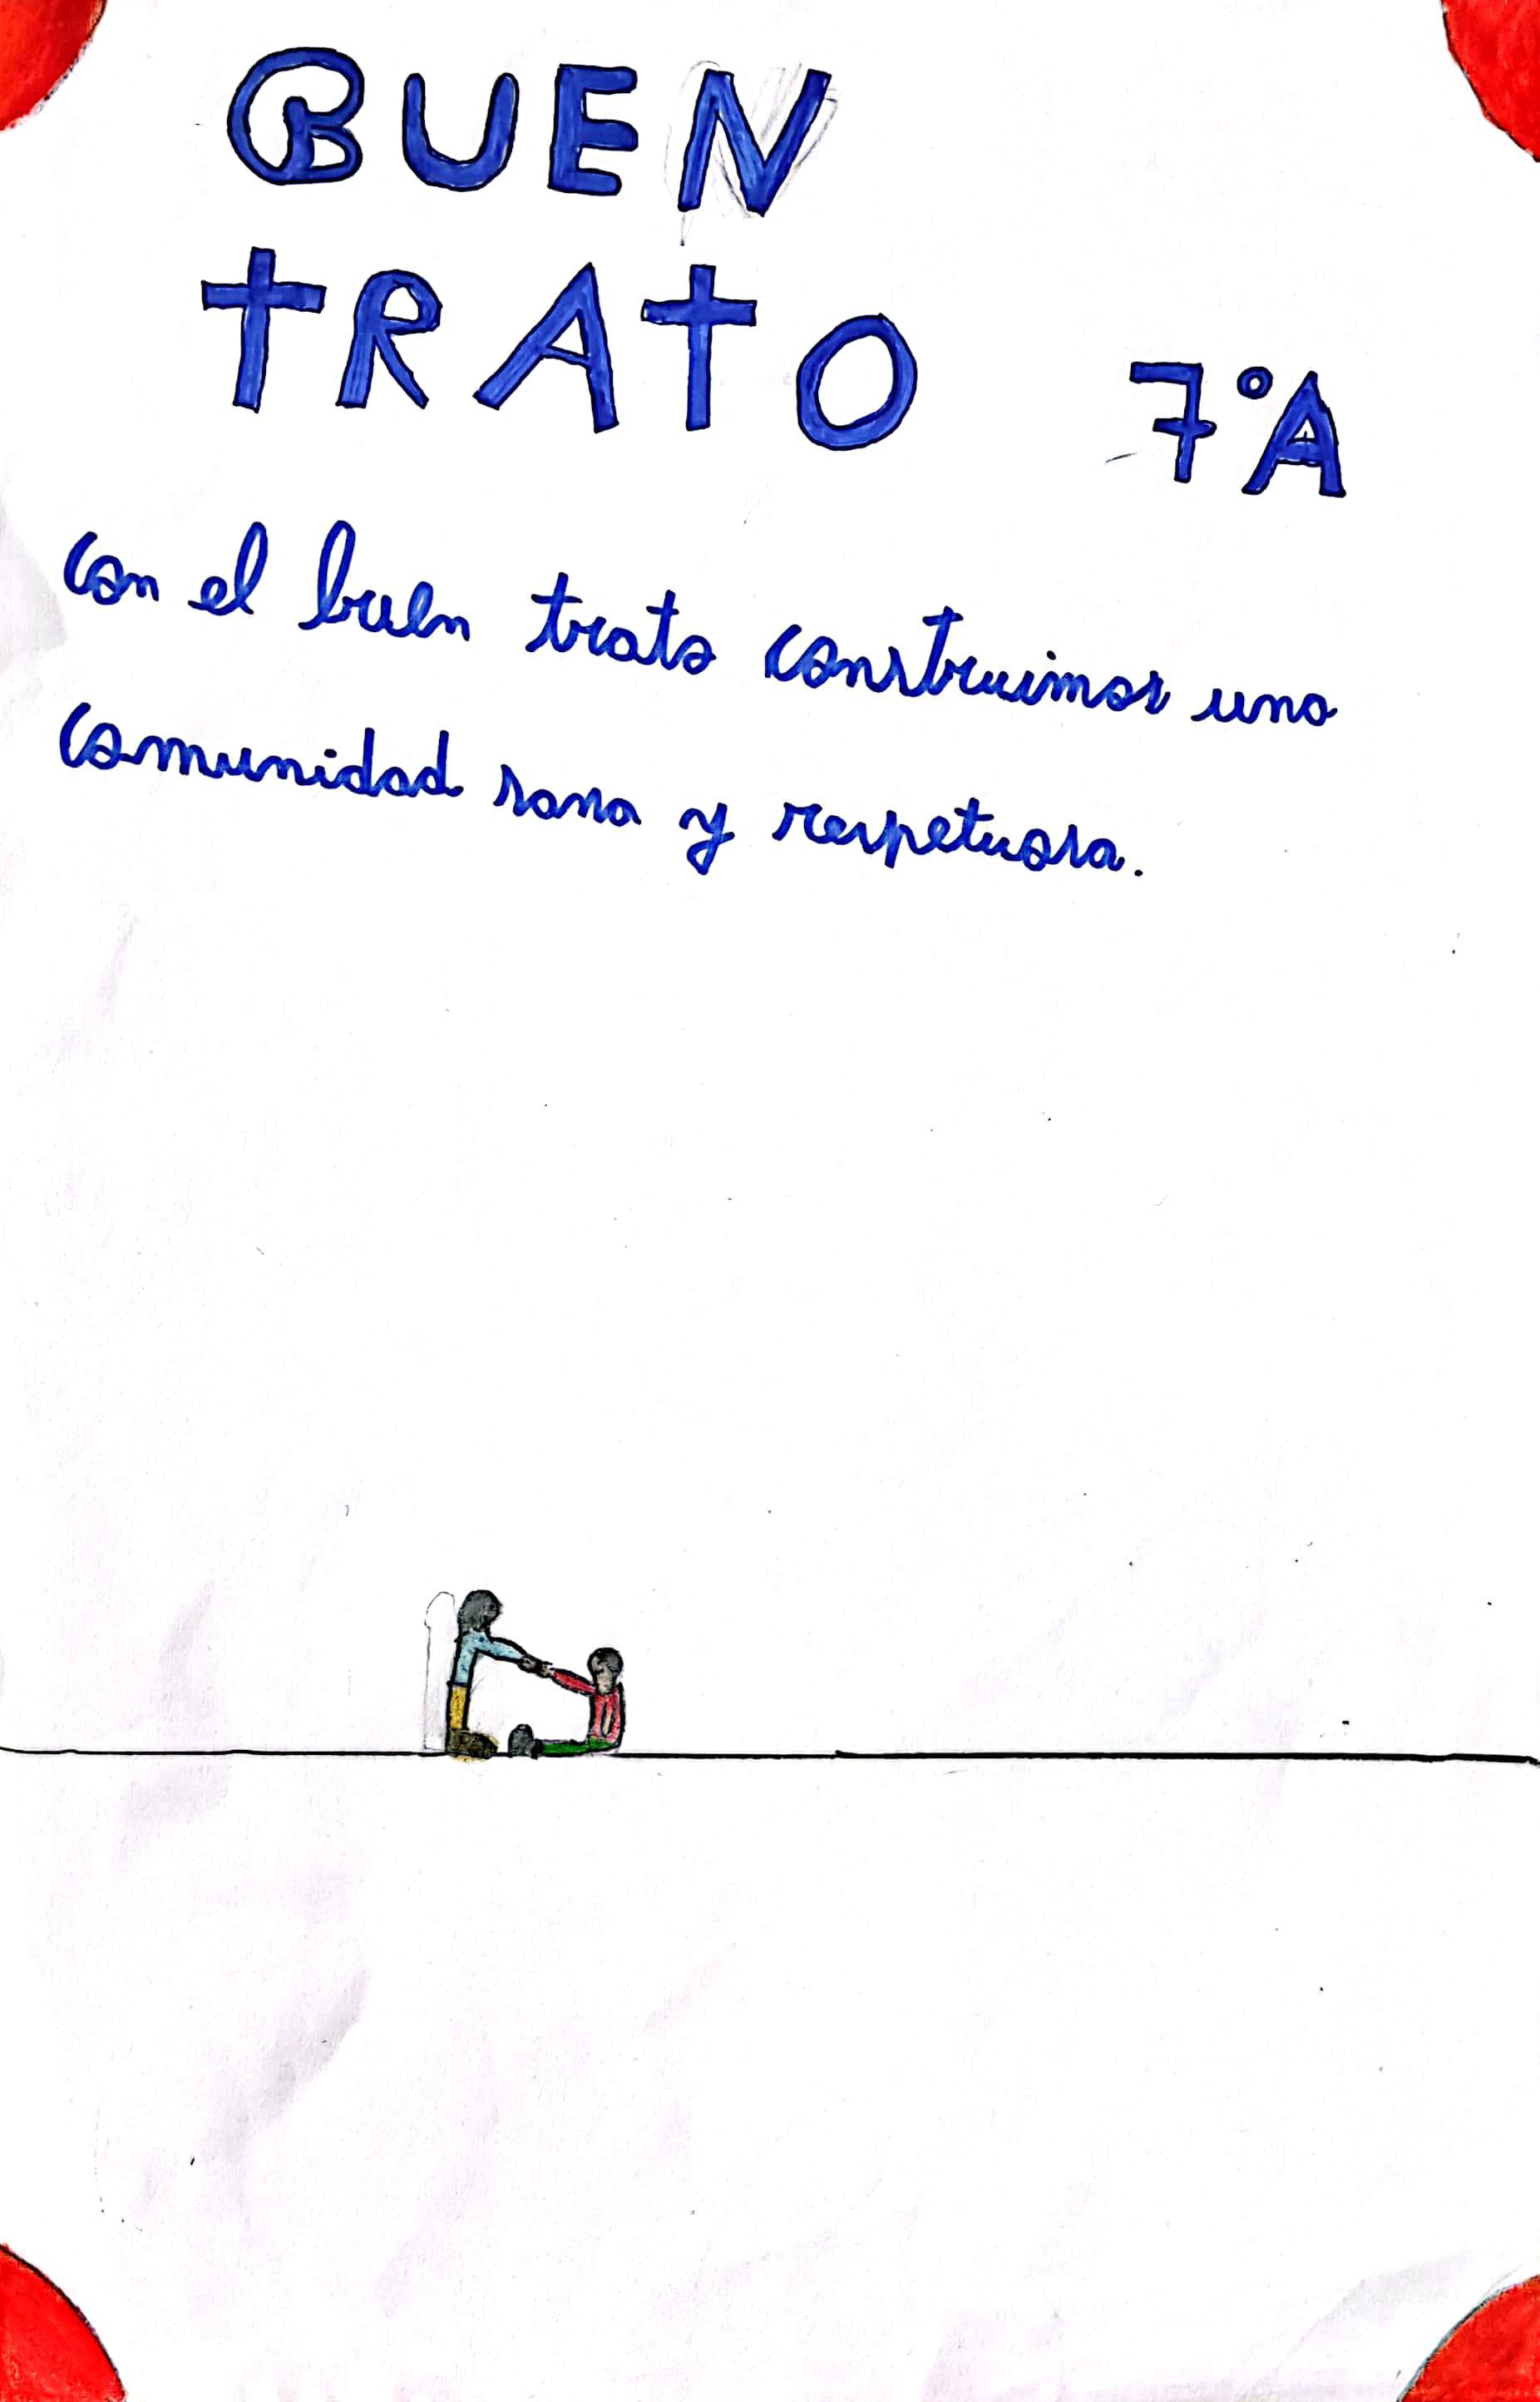 BUEN
TRATO 7°A
con el buen trato construimos una
comunidad sana y respetuosa.